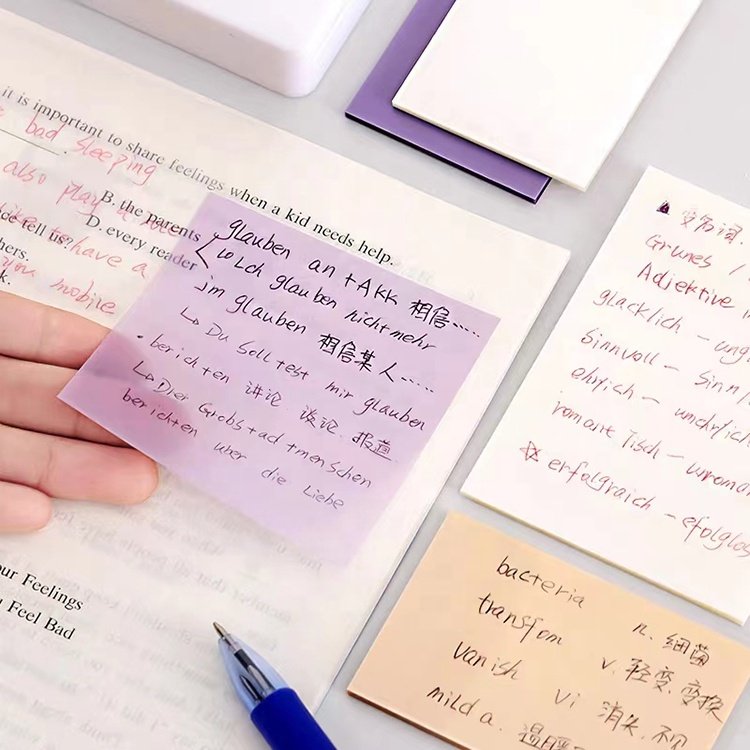 it is important to share feelings when a kid needs help.
bad sleeping
also play
B. the parents
ce tell us?
D. every reader
hers.
have a
you mobile
k.
glauben an +AKK 相信……
Ich glauben nicht mehr
jm glauben 相信某人……
↳ Du solltest mir glauben
• berichten 讲论 谈论 报道
↳ Dier Grobstadtmenschen
berichten uber die Liebe
our Feelings
u Feel Bad
▲ 变名词.
Grunes /
Adjektive
glacklich – ung
Sinnvoll – Sinnl
ehrlich – unehrlich
romantisch – unroman
☆ erfolgraich – efolglos
bacteria n. 细菌
transfom v. 轻变. 变换
vanish vi 消失. 不见
mild a. 温暖